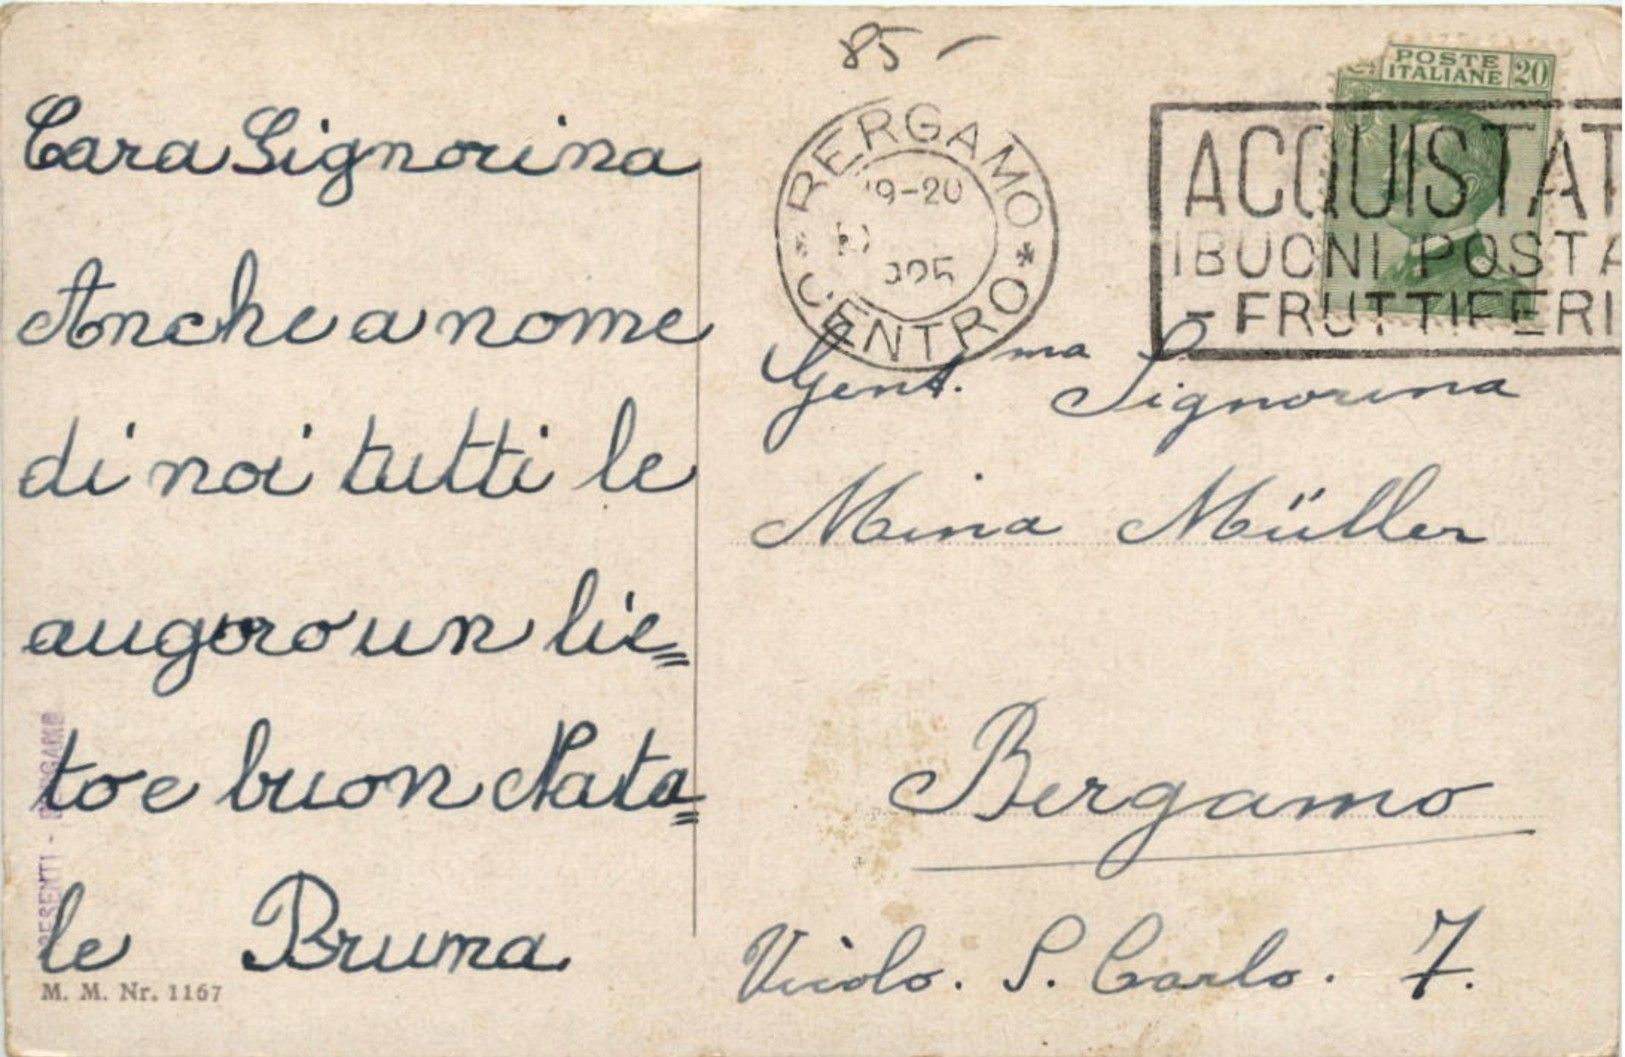 85 -
POSTE
ITALIANE 20
BERGAMO
19-20
CENTRO
ACQUISTAT
I BUONI POSTA
- FRUTTIFERI
Cara Signorina
Anche a nome
di noi tutti le
auguro un lie=
to e buon Nata=
le Bruna
M. M. Nr. 1167
Gent.ma Signorina
Mina Müller
Bergamo
Vicolo. S. Carlo. 7.